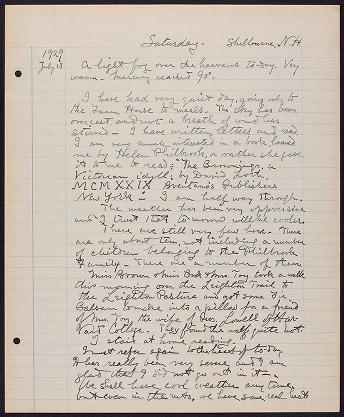 Saturday. Shelburne, N.H.
1929
July 13
A light fog over the heavens to-day. Very
warm. Mercury reached 90°.
I have had very quiet day, going only to
the Farm House to meals. The sky has been
overcast and not a breath of wind has
stirred - I have written letters and read.
I am very much interested in a book loaned
me by Helen Philbrook, or rather she gave
it to me to read; "The Brownings, a
Victorian idyll; by David Loth.
MCMXXIX Brentano's Publishers
New York - I am half way through.
The weather has been very oppressive
and I trust that to-morrow will be cooler.
There are still very few here. There
are only about ten, not including a number
of children belonging to the Philbrook
family - There are a number of them.
Miss Brown & Miss Bush & Mrs. Toy took a walk
this morning over the Leighton Trail to
the Leighton Pasture and got some
Balsam boughs into a pillow for a friend
of Mrs Toy, the wife of Pres. Lowell of Har-
vard College. They found the walk quite hot.
I staid at home reading.
I must refer again to the heat of to-day
It has really been very severe and I am
glad that I did not go out in it -
We shall have cool weather any time,
but even in the mts, we have some real heat